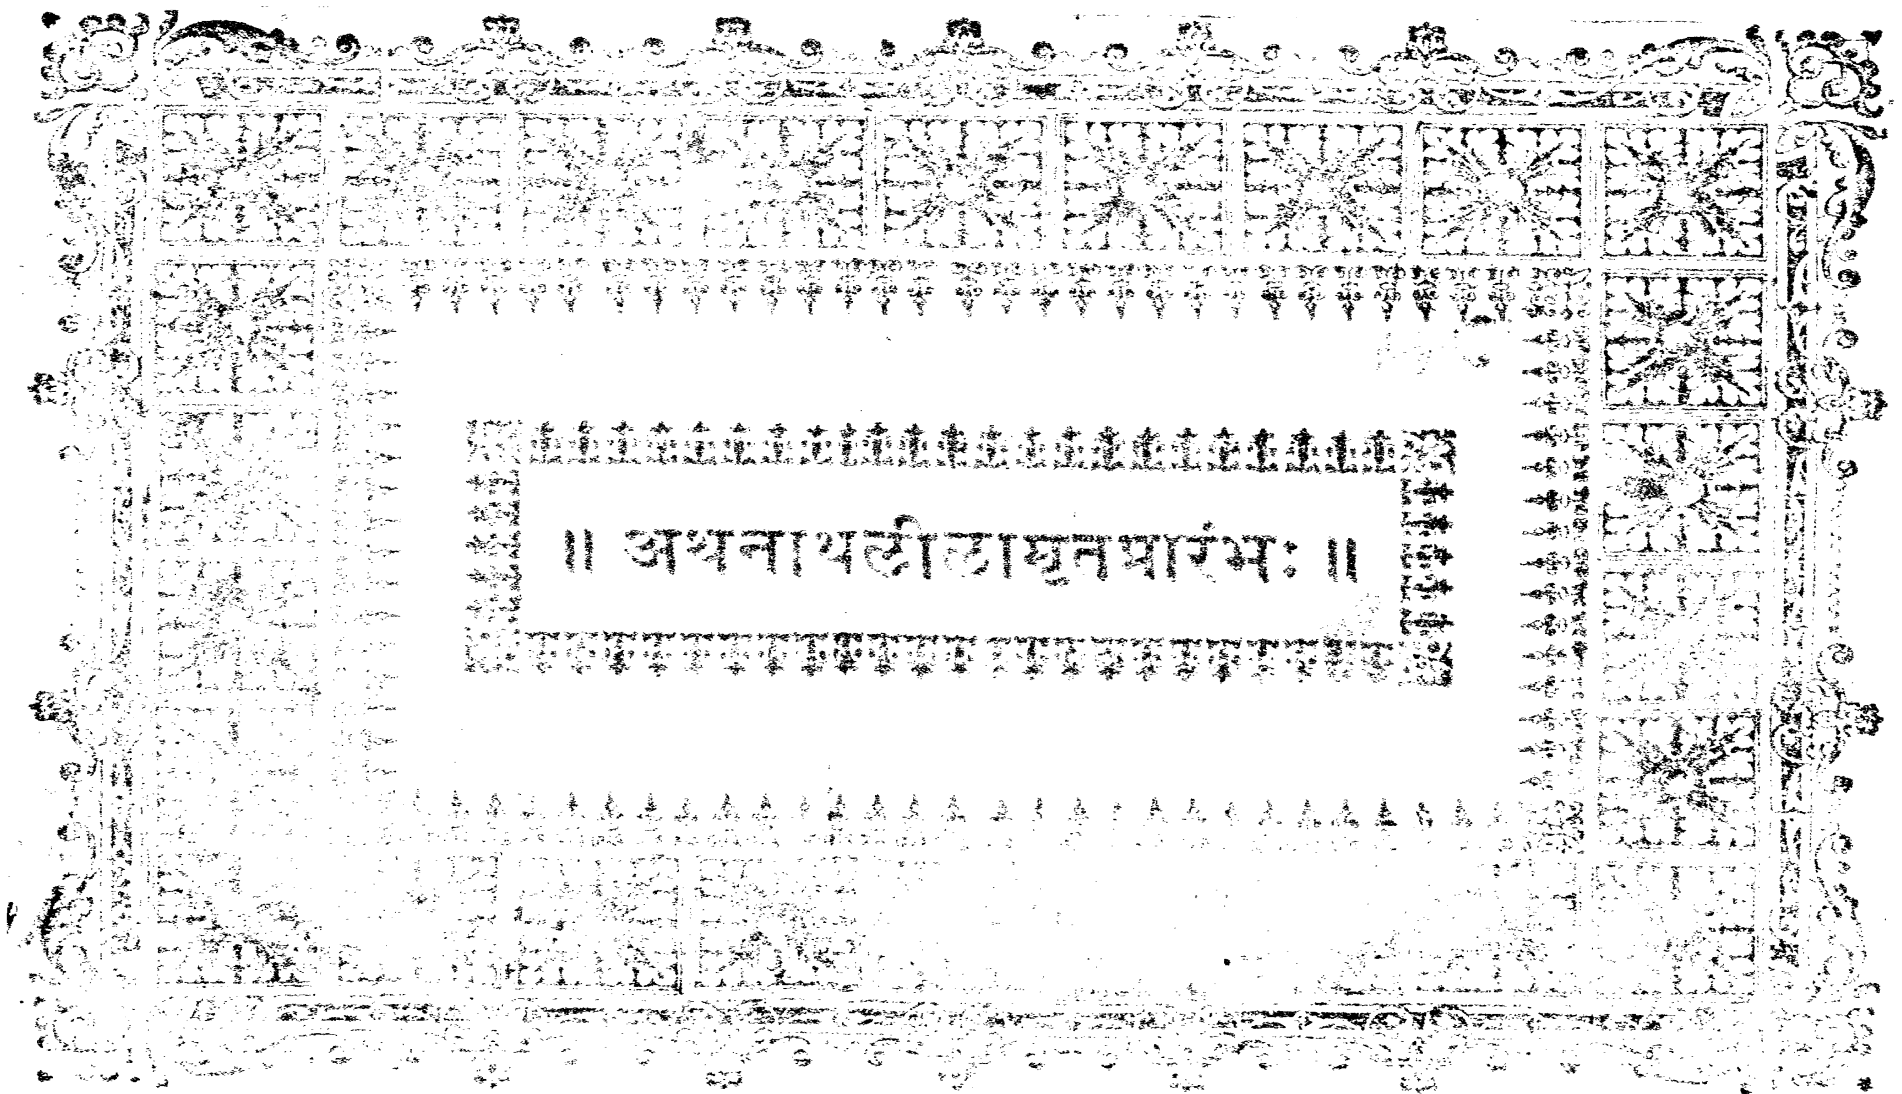 ॥ अथनाथलीलामृतप्रारंभः ॥